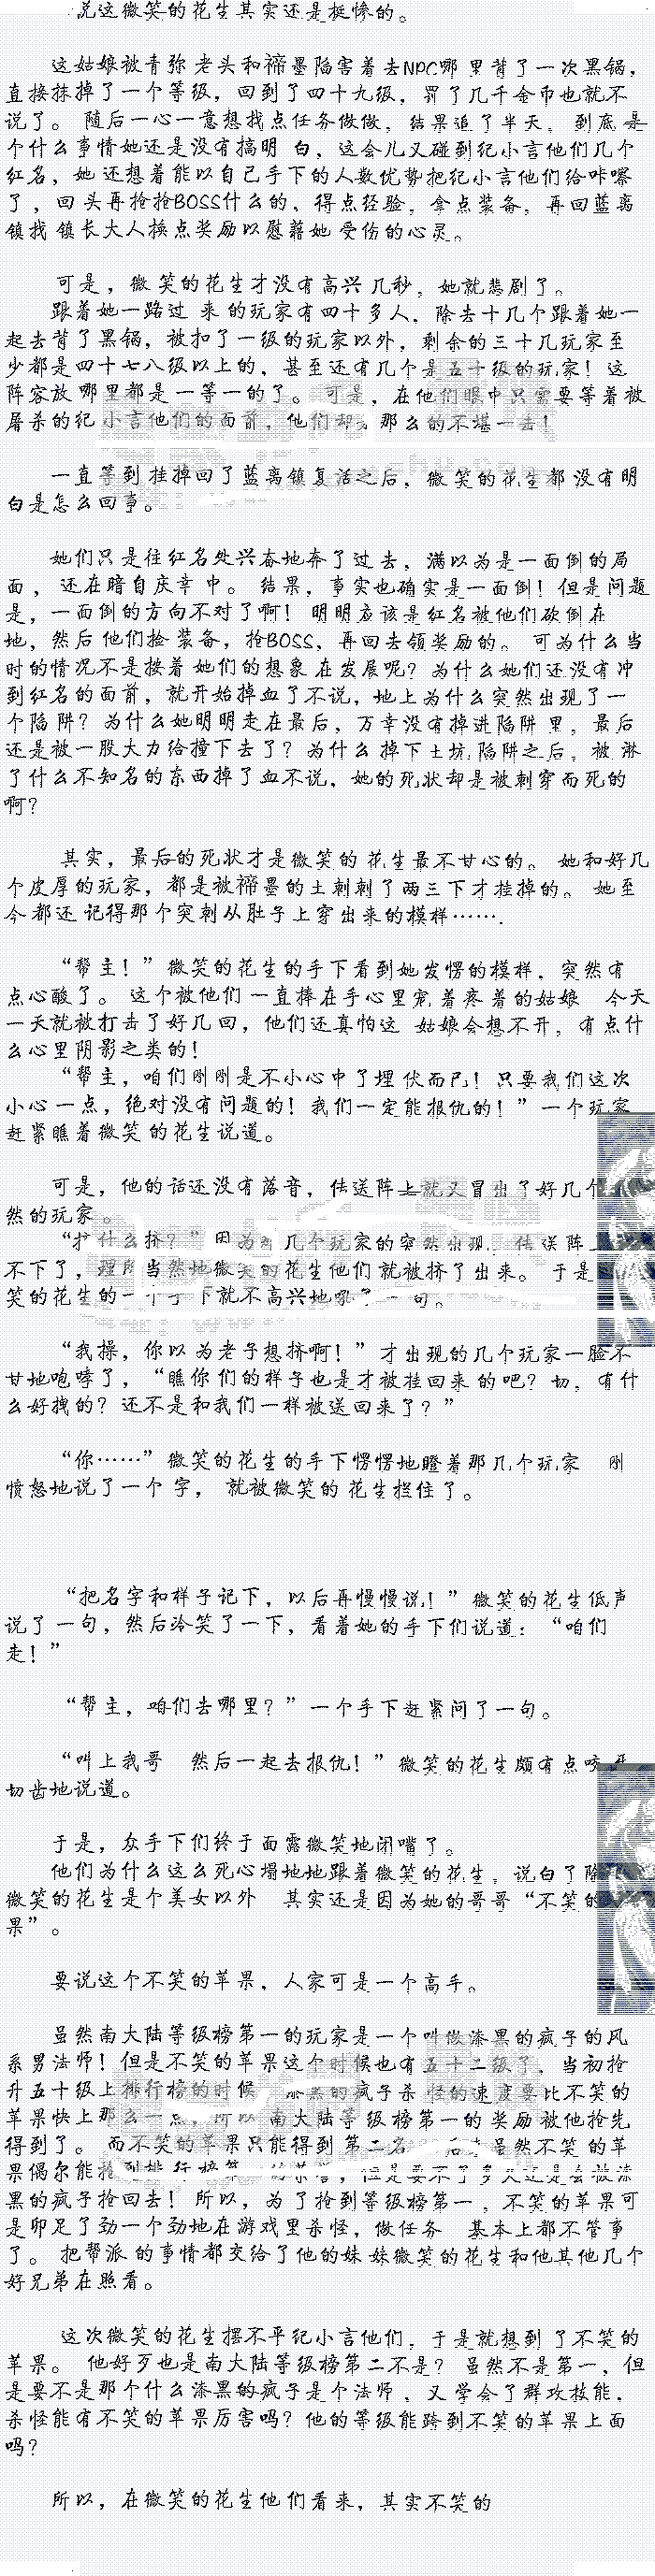 说这微笑的花生其实还是挺惨的。
这姑娘被青弥老头和褅墨陷害着去NPC哪里背了一次黑锅，
直接抹掉了一个等级，回到了四十九级，罚了几千金币也就不
说了。随后一心一意想找点任务做做，结果追了半天，到底是
个什么事情她还是没有搞明白，这会儿又碰到纪小言他们几个
红名，她还想着能以自己手下的人数优势把纪小言他们给咔嚓
了，回头再抢抢BOSS什么的，得点经验，拿点装备，再回蓝离
镇找镇长大人换点奖励以慰藉她受伤的心灵。
可是，微笑的花生才没有高兴几秒，她就悲剧了。
跟着她一路过来的玩家有四十多人，除去十几个跟着她一
起去背了黑锅，被扣了一级的玩家以外，剩余的三十几玩家至
少都是四十七八级以上的，甚至还有几个是五十级的玩家！这
阵容放哪里都是一等一的了。可是，在他们眼中只需要等着被
屠杀的纪小言他们的面前，他们却那么的不堪一击！
一直等到挂掉回了蓝离镇复活之后，微笑的花生都没有明
白是怎么回事。
她们只是往红名处兴奋地奔了过去，满以为是一面倒的局
面，还在暗自庆幸中。结果，事实也确实是一面倒！但是问题
是，一面倒的方向不对了啊！明明应该是红名被他们砍倒在
地，然后他们捡装备，抢BOSS，再回去领奖励的。可为什么当
时的情况不是按着她们的想象在发展呢？为什么她们还没有冲
到红名的面前，就开始掉血了不说，地上为什么突然出现了一
个陷阱？为什么她明明走在最后，万幸没有掉进陷阱里，最后
还是被一股大力给撞下去了？为什么掉下土坑陷阱之后，被淋
了什么不知名的东西掉了血不说，她的死状却是被刺穿而死的
啊？
其实，最后的死状才是微笑的花生最不甘心的。她和好几
个皮厚的玩家，都是被褅墨的土刺刺了两三下才挂掉的。她至
今都还记得那个突刺从肚子上穿出来的模样…….
“帮主！”微笑的花生的手下看到她发愣的模样，突然有
点心酸了。这个被他们一直捧在手心里宠着疼着的姑娘 今天
一天就被打击了好几回，他们还真怕这姑娘会想不开，有点什
么心里阴影之类的！
“帮主，咱们刚刚是不小心中了埋伏而已！只要我们这次
小心一点，绝对没有问题的！我们一定能报仇的！”一个玩家
赶紧瞧着微笑的花生说道。
可是，他的话还没有落音，传送阵上就又冒出了好几个
然的玩家。
“挤什么挤？”因为有几个玩家的突然出现，传送阵
不下了，理所当然地微笑的花生他们就被挤了出来。于是
笑的花生的一个手下就不高兴地吼了一句。
“我操，你以为老子想挤啊！”才出现的几个玩家一脸不
甘地咆哮了，“瞧你们的样子也是才被挂回来的吧？切，有什
么好拽的？还不是和我们一样被送回来了？”
“你……”微笑的花生的手下愣愣地瞪着那几个玩家 刚
愤怒地说了一个字，就被微笑的花生拦住了。
“把名字和样子记下，以后再慢慢说！”微笑的花生低声
说了一句，然后冷笑了一下，看着她的手下们说道：“咱们
走！”
“帮主，咱们去哪里？”一个手下赶紧问了一句。
“叫上我哥 然后一起去报仇！”微笑的花生颇有点咬牙
切齿地说道。
于是，众手下们终于面露微笑地闭嘴了。
他们为什么这么死心塌地地跟着微笑的花生，说白了除
微笑的花生是个美女以外 其实还是因为她的哥哥“不笑的
果”。
要说这个不笑的苹果，人家可是一个高手。
虽然南大陆等级榜第一的玩家是一个叫做漆黑的疯子的风
系男法师！但是不笑的苹果这个时候也有五十二级了，当初抢
升五十级上排行榜的时候 漆黑的疯子杀怪的速度要比不笑的
苹果快上那么一点，所以南大陆等级榜第一的奖励被他抢先
得到了。而不笑的苹果只能得到第二名 后来虽然不笑的苹
果偶尔能抢到排行榜第一的荣誉，但是要不了多久还是会被漆
黑的疯子抢回去！所以，为了抢到等级榜第一，不笑的苹果可
是卯足了劲一个劲地在游戏里杀怪，做任务 基本上都不管事
了。把帮派的事情都交给了他的妹妹微笑的花生和他其他几个
好兄弟在照看。
这次微笑的花生摆不平纪小言他们，于是就想到了不笑的
苹果。他好歹也是南大陆等级榜第二不是？虽然不是第一，但
是要不是那个什么漆黑的疯子是个法师，又学会了群攻技能，
杀怪能有不笑的苹果厉害吗？他的等级能跨到不笑的苹果上面
吗？
所以，在微笑的花生他们看来，其实不笑的